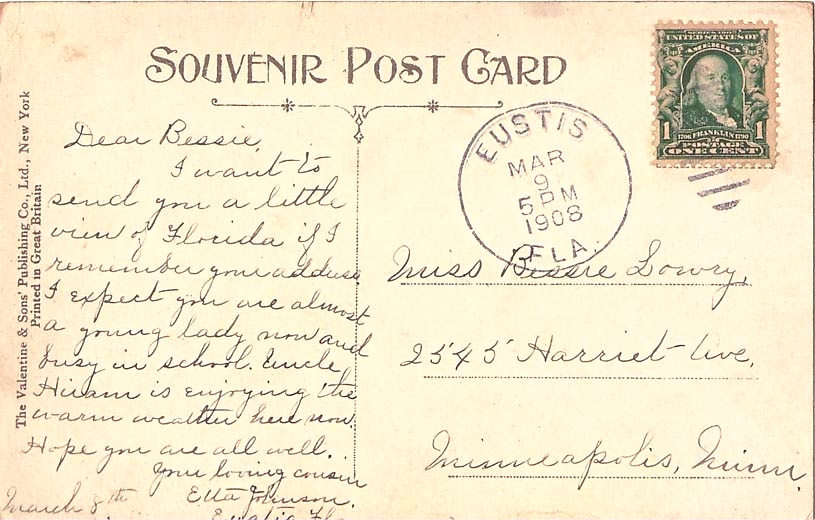 SOUVENIR POST CARD
The Valentine & Sons' Publishing Co., Ltd., New York
Printed in Great Britain
Dear Bessie,
I want to
send you a little
view of Florida if I
remember your address.
I expect you are almost
a young lady now and
busy in school. Uncle
Hiram is enjoying the
warm weather here now.
Hope you are all well.
Your loving cousin
Etta Johnson.
March 8th
Eustis Fla
EUSTIS
MAR
9
5 PM
1908
FLA.
SERIES 1902
UNITED STATES OF
AMERICA
1706 FRANKLIN 1790
POSTAGE
1 ONE CENT 1
Miss Bessie Lowry,
2545 Harriet Ave,
Minneapolis, Minn.